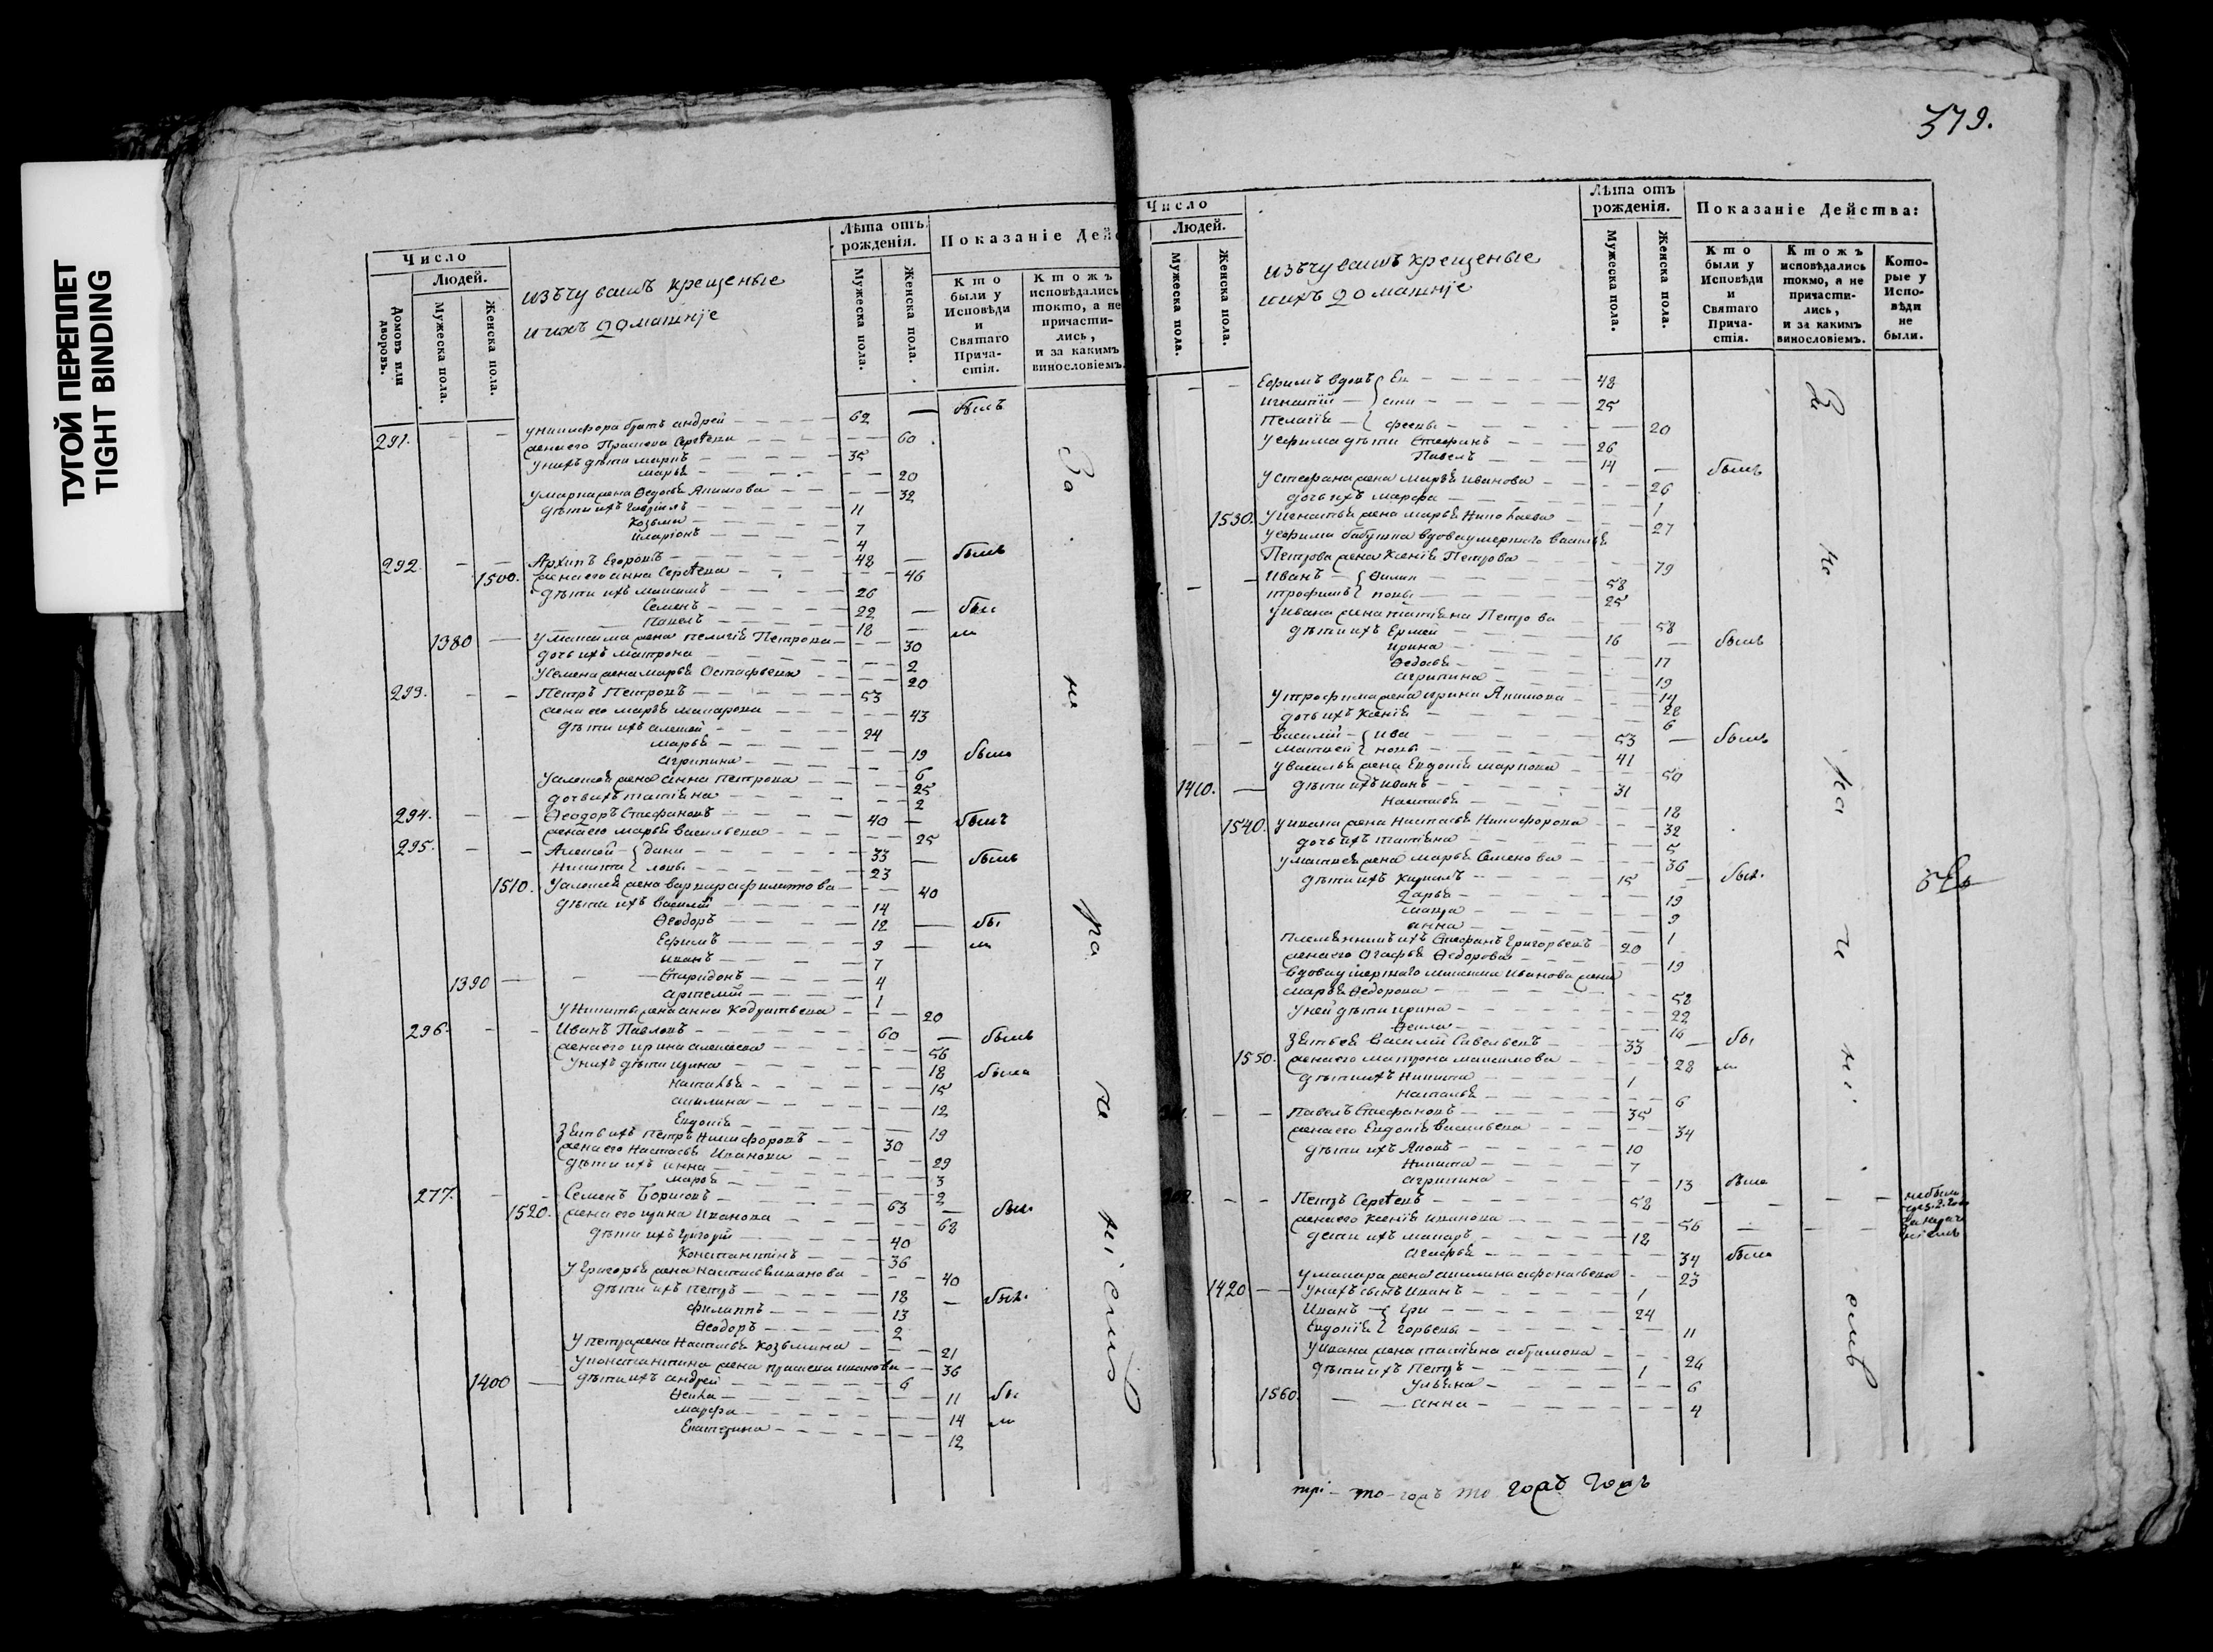 ТУГОЙ ПЕРЕПЛЕТ
TIGHT BINDING
Число
Людей.
Домовъ или дворовъ.
Мужеска пола.
Женска пола.
изъ чувашъ крещеные
и ихъ домашнiе
Лѣта отъ рожденiя.
Мужеска пола.
Женска пола.
Показанiе Дей
Кто были у Исповѣди и Святаго Прича-стiя.
Ктожъ исповѣдались токмо, а не причасти-лись, и за какимъ винословiемъ.
291. — — у никифора братъ андрей — 62 — былъ
жена его Прасковья Сергѣева — 60
у нихъ дѣти маркъ — 35
марья — 20
у марка жена Ѳедосья Якимова — 32
дѣти ихъ гаврiилъ — 11
Козьма — 7
иларiонъ — 4
292. — — Архипъ Егоровъ — 48 — былъ
1500. жена его анна Сергѣева — 46
дѣти ихъ максимъ — 26
Семенъ — 22 — бы
Павелъ — 18 — ли
1380 — у максима жена пелагiя Петрова — 30
дочь ихъ матрона — 2
у Семена жена марья Остафьева — 20
293. — — Петръ Петровъ — 53
жена его марья макарова — 43
дѣти ихъ алексей — 24
марья — 19 была
агрипина — 6
у алексея жена анна петрова — 25
дочь ихъ татiяна — 2
294. — — Ѳеодоръ Стефановъ — 40 — былъ
жена его марья васильева — 25
295. — — Алексей { дани — 33 — былъ
Никита { ловы — 23
1510. у алексея жена варвара филиппова — 40
дѣти ихъ василiй — 14
Ѳеодоръ — 12 — бы
Ефимъ — 9 — ли
иванъ — 7
1390 — Спиридонъ — 4
артемiй — 1
у Никиты жена анна Кодратьева — 20
296. — — Иванъ Павловъ — 60 — былъ
жена его ирина алексеева — 56
у нихъ дѣти ирина — 18 была
наталья — 15
акилина — 12
Евдокiя — 19
зять ихъ Петръ Никифоровъ — 30
жена его Настасья Иванова — 29
дѣти ихъ анна — 3
марья — 2
277. — — Семенъ Борисовъ — 63 — былъ
1520. жена его ирина Иванова — 68
дѣти ихъ григорiй — 40
Константинъ — 36
у Григорья жена настасья иванова — 40
дѣти ихъ петръ — 18 — былъ
филиппъ — 13
Ѳеодоръ — 2
у петра жена Настасья Козьмина — 21
у константина жена прасковья иванова — 36
1400 — дѣти ихъ андрей — 6
Ѳекла — 11 бы
марфа — 14 ли
Екатерина — 12
За не ра че нi емъ
379.
Число
Людей.
Мужеска пола.
Женска пола.
изъ чувашъ крещеные
и ихъ домашнiе
Лѣта отъ рожденiя.
Мужеска пола.
Женска пола.
Показанiе Действа:
Кто были у Исповѣди и Святаго Прича-стiя.
Ктожъ исповѣдались токмо, а не причасти-лись, и за какимъ винословiемъ.
Кото-рые у Испо-вѣди не были.
Ефимъ вдовъ { Ев — 48
игнатiй { сти — 25
Пелагiя { феевы — 20
у ефима дѣти Стефанъ — 26
Павелъ — 14 — былъ
у Стефана жена Марья иванова — 26
дочь ихъ марфа — 1
1530. у игнатья жена марья Николаева — 27
у ефима бабушка вдова умершаго василья
Петрова жена Ксенiя Петрова — 79
Иванъ { Филип — 58
трофимъ { повы — 25
у ивана жена татiяна Петрова — 58
дѣти ихъ Ермей — 16 — былъ
ирина — 17
Ѳедосья — 19
агрипина — 14
у трофима жена ирина Якимова — 28
дочь ихъ Ксенiя — 6
Василiй { ива — 53 — былъ
матвей { новы — 41
у василья жена Евдокiя маркова — 50
1410. — дѣти ихъ иванъ — 31
Настасья — 18
1540. у ивана жена Настасья Никифорова — 32
дочь ихъ татiяна — 5
у матвея жена марья Семенова — 36
дѣти ихъ Кирилъ — 15 — былъ
Дарья — 19
мавра — 9
анна — 1
племянникъ ихъ Стефанъ Григорьевъ — 20
жена его Огафья Ѳедорова — 19
вдова умершаго максима Иванова жена
марья Ѳедорова — 58
у ней дѣти ирина — 22
Ѳекла — 16
зять ея Василiй Савельевъ — 33 — бы
1550. жена его матрона максимова — 28 ли
дѣти ихъ Никита — 1
Наталья — 6
— — Павелъ Стефановъ — 35
жена его Евдокiя васильева — 34
дѣти ихъ Яковъ — 10
Никита — 7
агрипина — 13 была
— — Петръ Сергѣевъ — 58 — — — не были
жена его Ксенiя иванова — 56 — —
дети ихъ макаръ — 18
агафья — 34 была
у макара жена акилина афонасьева — 23
1420 — — у нихъ сынъ Иванъ — 1
Иванъ { гри — 24
Евдокiя { горьевы — 11
у ивана жена татiяна абрамова — 26
дѣти ихъ Петръ — 1
Ульяна — 6
1560. — анна — 4
За не ра че нi емъ